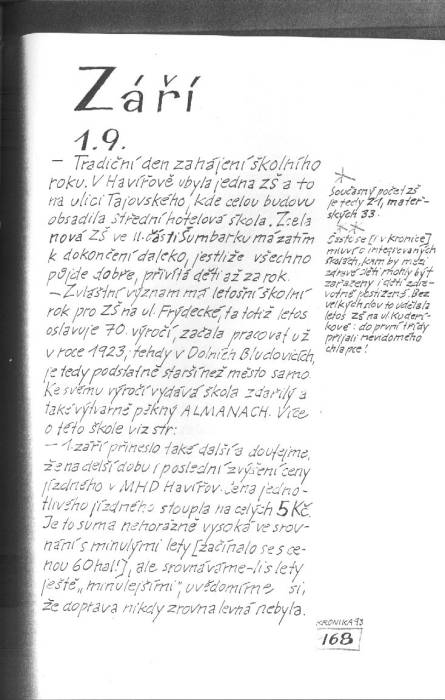 Září
1.9.
— Tradiční den zahájení školního
roku. V Havířově ubyla jedna ZŠ a to
na ulici Tajovského, kde celou budovu
obsadila střední hotelová škola. Zcela
nová ZŠ ve II. části Šumbarku má zatím
k dokončení daleko, jestliže všechno
půjde dobře, přivítá děti až za rok.
— Zvláštní význam má letošní školní
rok pro ZŠ na ul. Frýdecké, ta totiž letos
oslavuje 70. výročí, začala pracovat už
v roce 1923, tehdy v Dolních Bludovicích,
je tedy podstatně starší než město samo.
Ke svému výročí vydává škola zdařilý a
také výtvarně pěkný ALMANACH. Více
o této škole viz str:
— 1. září přineslo také další a doufejme,
že na delší dobu i poslední zvýšení ceny
jízdného v MHD Havířov. Cena jedno-
tlivého jízdného stoupla na celých 5 Kč.
Je to suma nehorázně vysoká ve srov-
nání s minulými lety [začínalo se s ce-
nou 60 hal!], ale srovnáváme-li s lety
ještě „minulejšími", uvědomíme si,
že doprava nikdy zrovna levná nebyla.
Současný počet ZŠ
je tedy 21, mateř-
ských 33.
Často se [i v Kronice]
mluví o integrovaných
školách, kam by mezi
zdravé děti mohly být
zařazeny i děti zdra-
votně postižené. Bez
velkých slov to udělala
letos ZŠ na ul. Kudeří-
kové: do první třídy
přijali nevidomého
chlapce!
KRONIKA 93
168